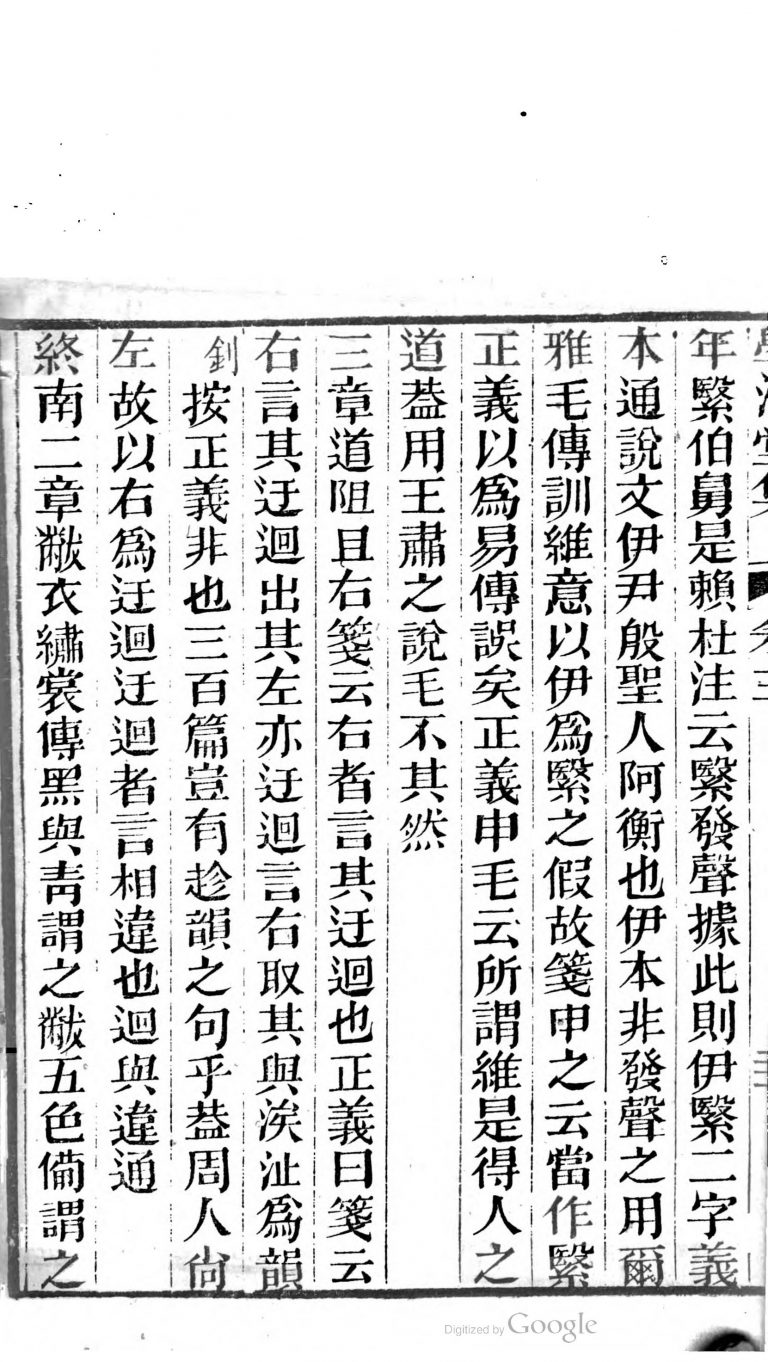 年繄伯舅是賴杜注云繄發聲據此則伊繄二字義
本通說文伊尹殷聖人阿衡也伊本非發聲之用爾
雅毛傳訓維意以伊爲繄之假故箋申之云當作繄
正義以爲易傳誤矣正義申毛云所謂維是得人之
道葢用王肅之說毛不其然
三章道阻且右箋云右者言其迂迴也正義曰箋云
右言其迂迴出其左亦迂迴言右取其與涘沚爲韻
釗按正義非也三百篇豈有趁韻之句乎葢周人尙
左故以右爲迂迴迂迴者言相違也迴與違通
終南二章黻衣繡裳傳黑與靑謂之黻五色備謂之
Digitized by Google